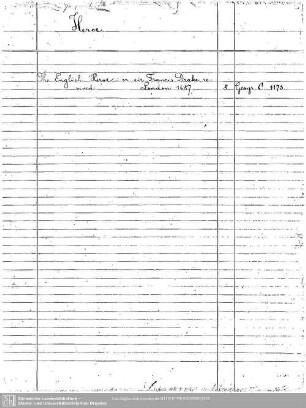 Heroe
The English Heroe: or sir Francis Drake re
vived. London 1687. 8. Geogr. C. 1173
Sächsische Landesbibliothek -
Staats- und Universitätsbibliothek Dresden